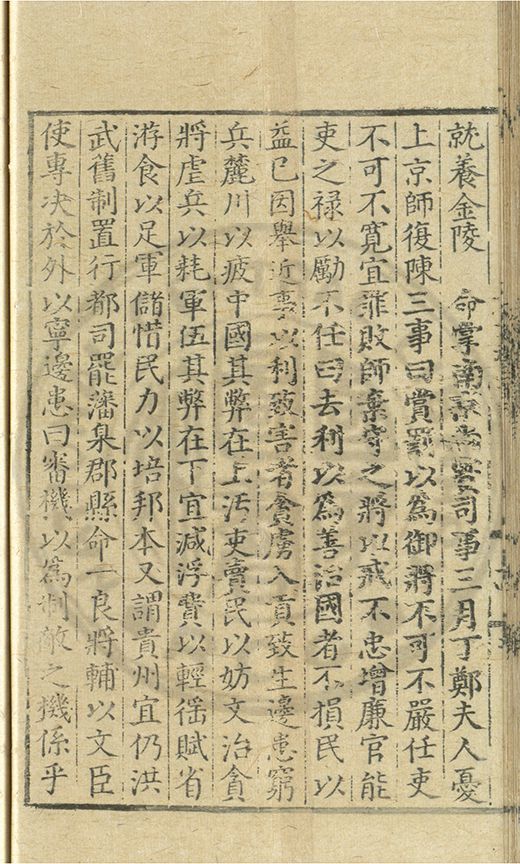 就養金陵　命掌南京司事三月丁鄭夫人憂
上京師復陳三事曰賞罰以為御將不可不嚴任吏
不可不寛宜罪敗師棄守之將以戒不忠增廉官能
吏之禄以勵不任曰去利以為善治國者不損民以
益已因舉近事以利致害者貪虜入貢致生邊患窮
兵麓川以疲中國其弊在上汚吏賣民以妨文治貪
將虐兵以耗軍伍其弊在下宜減浮費以輕徭賦省
游食以足軍儲惜民力以培邦本又謂貴州宜仍洪
武舊制置行都司罷藩臬郡縣命一良將輔以文臣
使專决於外以寧邊患曰審機以為制敵之機係乎